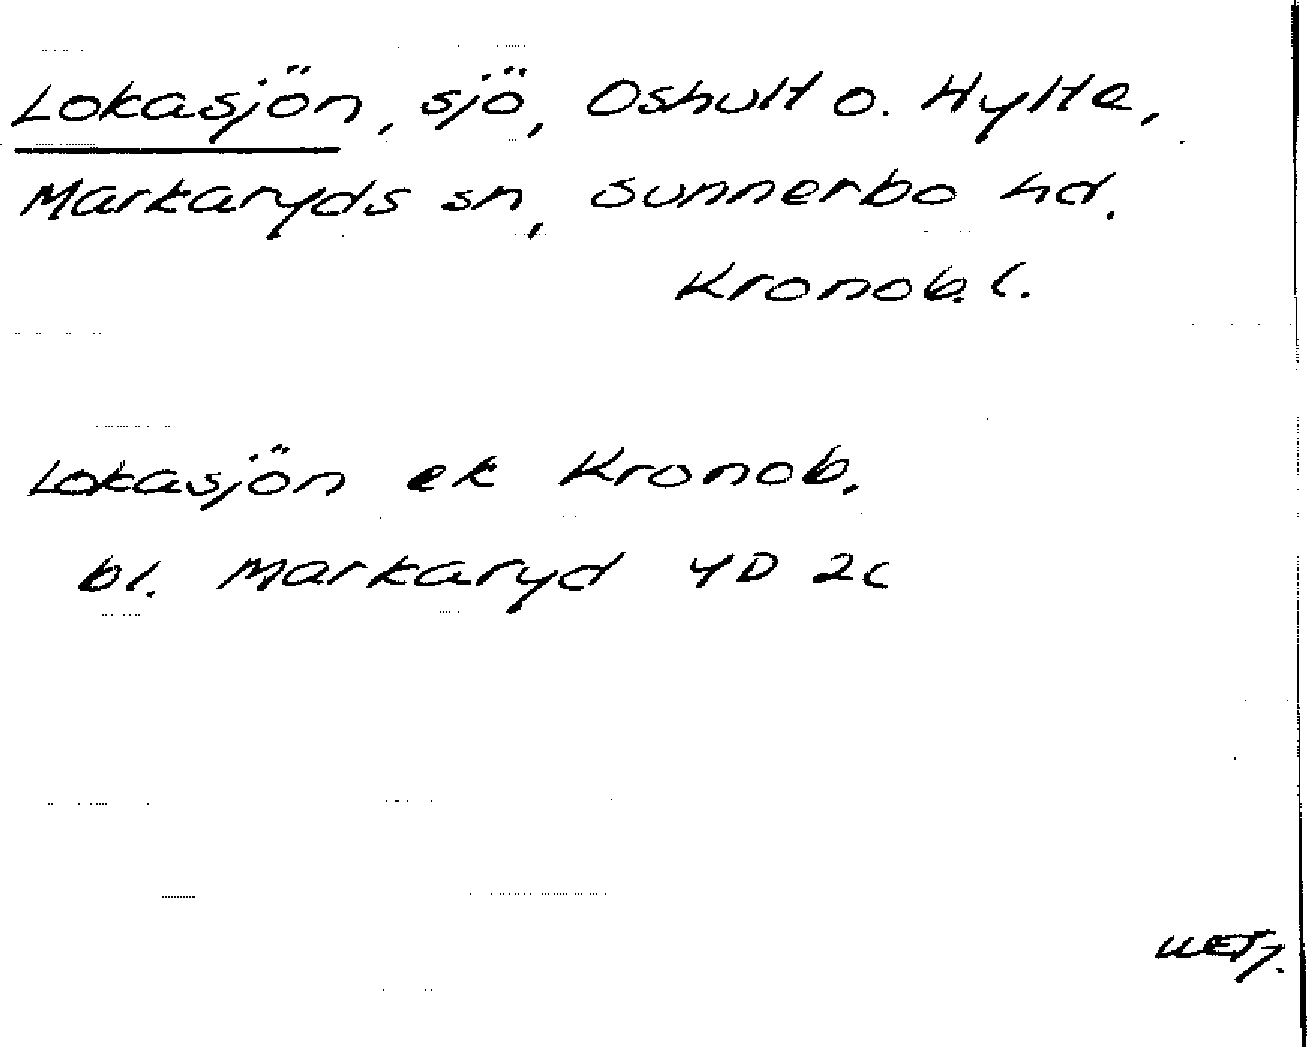 Lokasjön, sjö, Oshult o. Hylte,
Markaryds sn, Sunnerbo hd.
Kronob. l.
Lokasjön ek Kronob.
bl. Markaryd 4D 2c